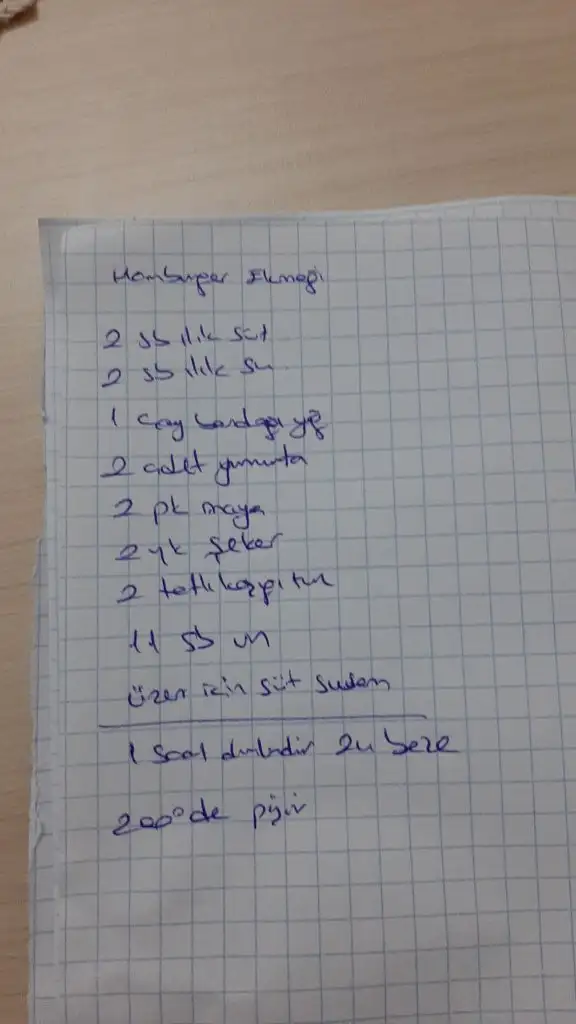 Hamburger Ekmeği
2 sb ılık süt
2 sb ılık su
1 çay bardağı yağ
2 adet yumurta
2 pk maya
2 yk şeker
2 tatlı kaşığı tuz
11 sb un
üzeri için süt susam
1 saat dinlendir 24 beze
200° de pişir